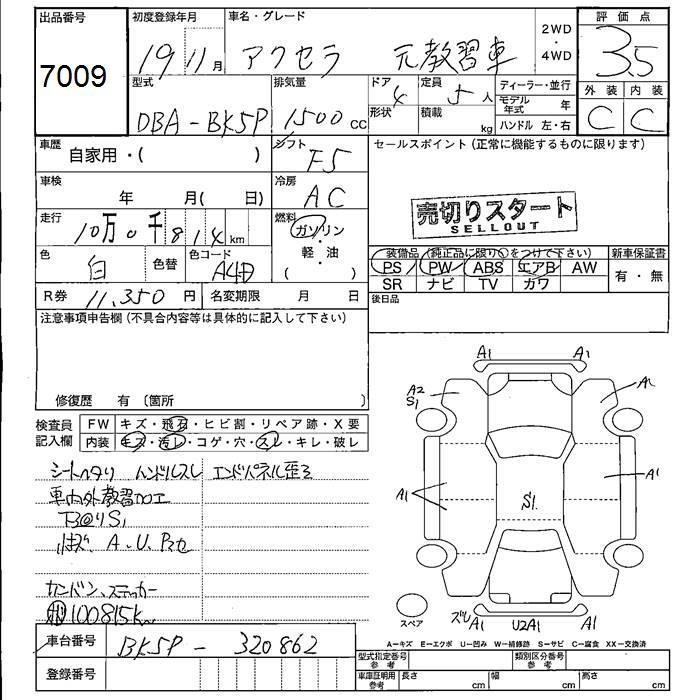 出品番号
7009
初度登録年月
19 11 月
車名・グレード
アクセラ 元教習車
2WD
・
4WD
評価点
3.5
型式
DBA-BK5P
排気量
1500 cc
ドア
4
形状
定員
5 人
積載
kg
ディーラー・並行
モデル年式 年
ハンドル 左・右
外装 内装
C C
車歴
自家用・( )
シフト
F5
セールスポイント (正常に機能するものに限ります)
売切りスタート
SELLOUT
車検
年 月( 日)
冷房
AC
走行
10万0千814 km
燃料
ガソリン
・
軽・油
( )
色
白
色替
色コード
A4D
装備品 (純正品に限り○をつけて下さい)
新車保証書
PS PW ABS エアB AW
SR ナビ TV カワ
有・無
R券 11,350 円
名変期限 月 日
後日品
注意事項申告欄 (不具合内容等は具体的に記入して下さい)
修復歴 有 〔箇所 〕
検査員記入欄
FW キズ・飛石・ヒビ割・リペア跡・X要
内装 キズ・汚レ・コゲ・穴・スレ・キレ・破レ
シートヘタリ ハンドルスレ エンドパネル歪ミ
車内外教習加工
S1
A.U.
カンバン、ステッカー
100815k
車台番号
BK5P - 320862
登録番号
A1 A1
A2
S1
A1
A1
A1
S1
スペア
ズレ A1 U2A1 A1
A-キズ E-エクボ U-凹み W-補修跡 S-サビ C-腐食 XX-交換済
型式指定番号
参考
類別区分番号
参考
車庫証明用
参考
長さ cm 幅 cm 高さ cm